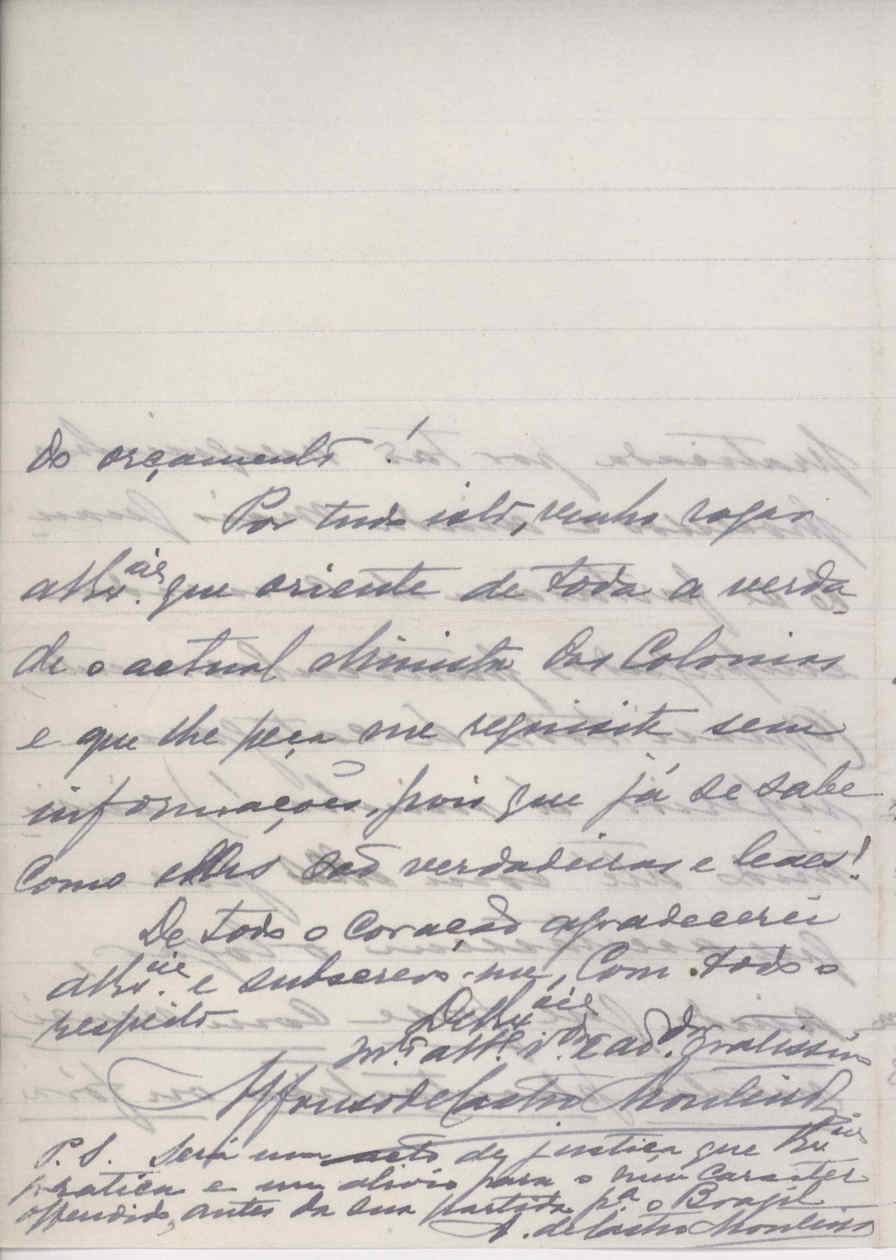 do orçamento!
Por tudo isto, venho rogar
a V. Ex.cia que oriente de toda a verda-
de o actual Ministro das Colonias
e que lhe peça me requisite sem
informações, pois que já se sabe
como ellas são verdadeiras e leaes!
De todo o coração agradecerei
a V. Ex.cia e subscrevo-me, com todo o
respeito
De V. Ex.cia
m.to att.o v.dor e ob.do gratissimo
Affonso de Castro Monteiro
P.S. Será um acto de justiça que V. Ex.cia
pratica e um alivio para o meu caracter
offendido, antes da sua partida p.a o Brazil
A. de Castro Monteiro